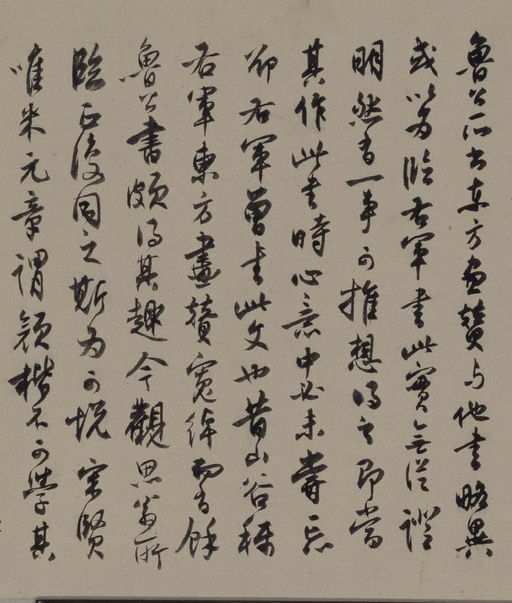 魯公所書東方畫贊與他書略異
或以為臨右軍書此實無從證
明然有一事可推想得之即當
其作此書時心意中必未嘗忘
卻右軍曾書此文也昔山谷稱
右軍東方畫贊寬綽而有餘
魯公書頗得其趣今觀思翁所
臨正復同之斯為可悅宋賢
唯米元章謂顏楷不可學其